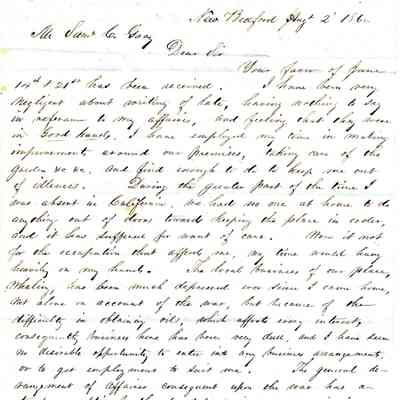 New Bedford Augt 2d 186
Mr Saml C. Gray
Dear Sir
Your favor of June
14th & 21st has been received. I have been very
negligent about writing of late, having nothing to say
in reference to my affairs, and feeling that they were
in Good Hands, I have employed my time in making
improvements around our premises, taking care of the
garden &c &c, and find enough to do to keep me out
of idleness. During the greater part of the time I
was absent in California, we had no one at home to do
anything out of doors towards keeping the place in order,
and it has suffered for want of care. Were it not
for the occupation that affords me, my time would hang
heavily on my hands. The local business of our place,
Whaling, has been much depressed ever since I came home,
not alone on account of the war, but because of the
difficulty in obtaining oils, which affects every interest,
consequently business here has been very dull, and I have seen
no desirable opportunity to enter into any business arrangements,
or to get employment to suit me. The general de-
rangement of affairs consequent upon the war has a-